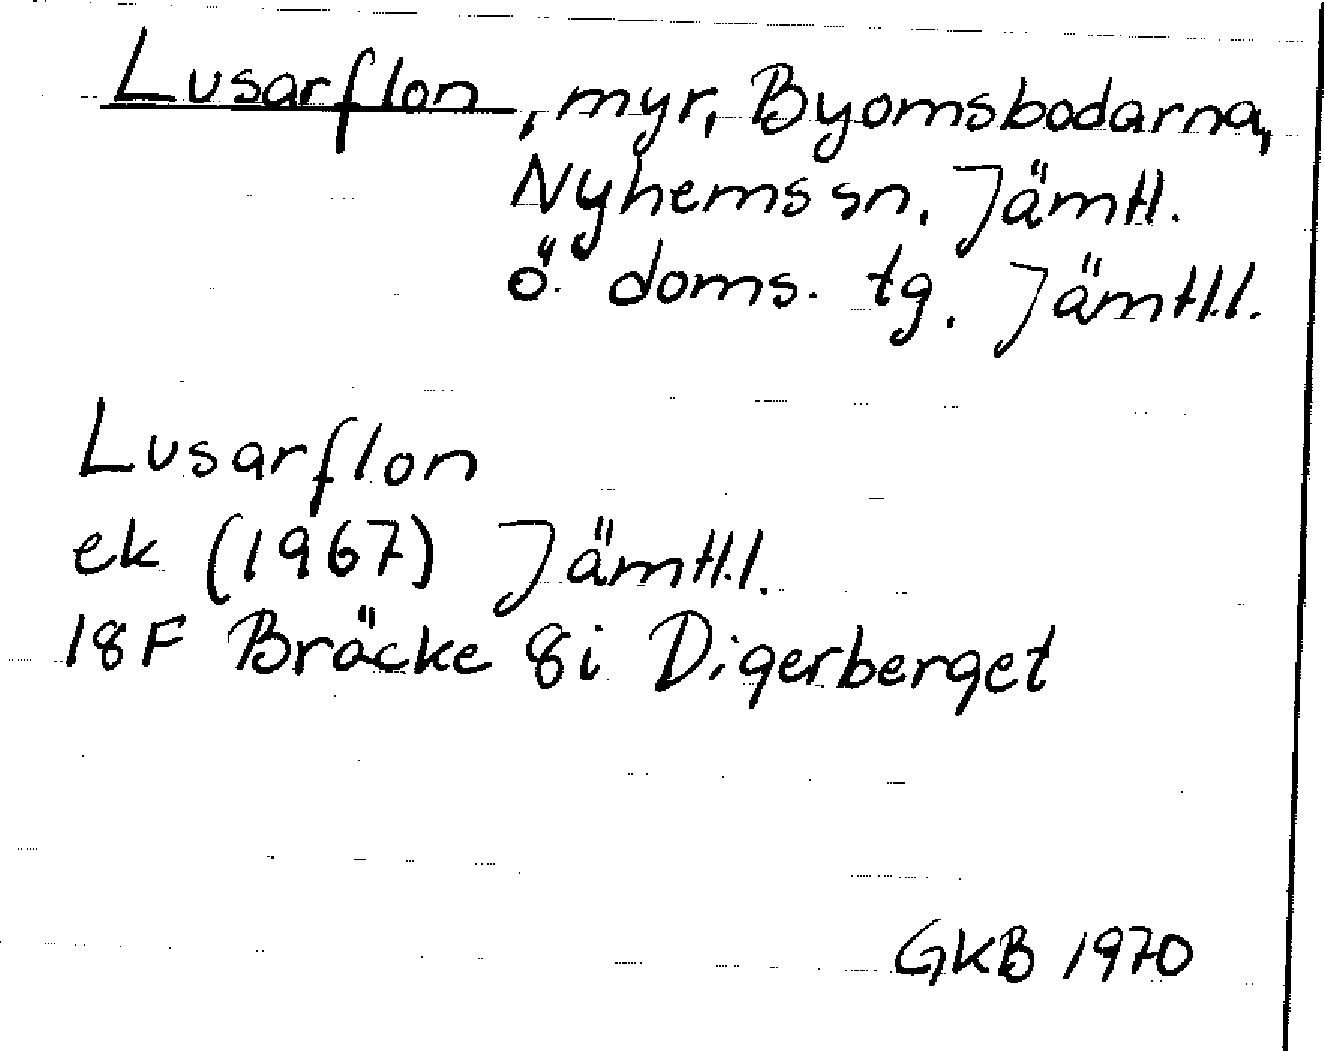 Lusarflon, myr, Byomsbodarna,
Nyhems sn. Jämtl.
ö. doms. tg. Jämtl.l.
Lusarflon
ek (1967) Jämtl.l.
18F Bräcke 8i Digerberget
GKB 1970